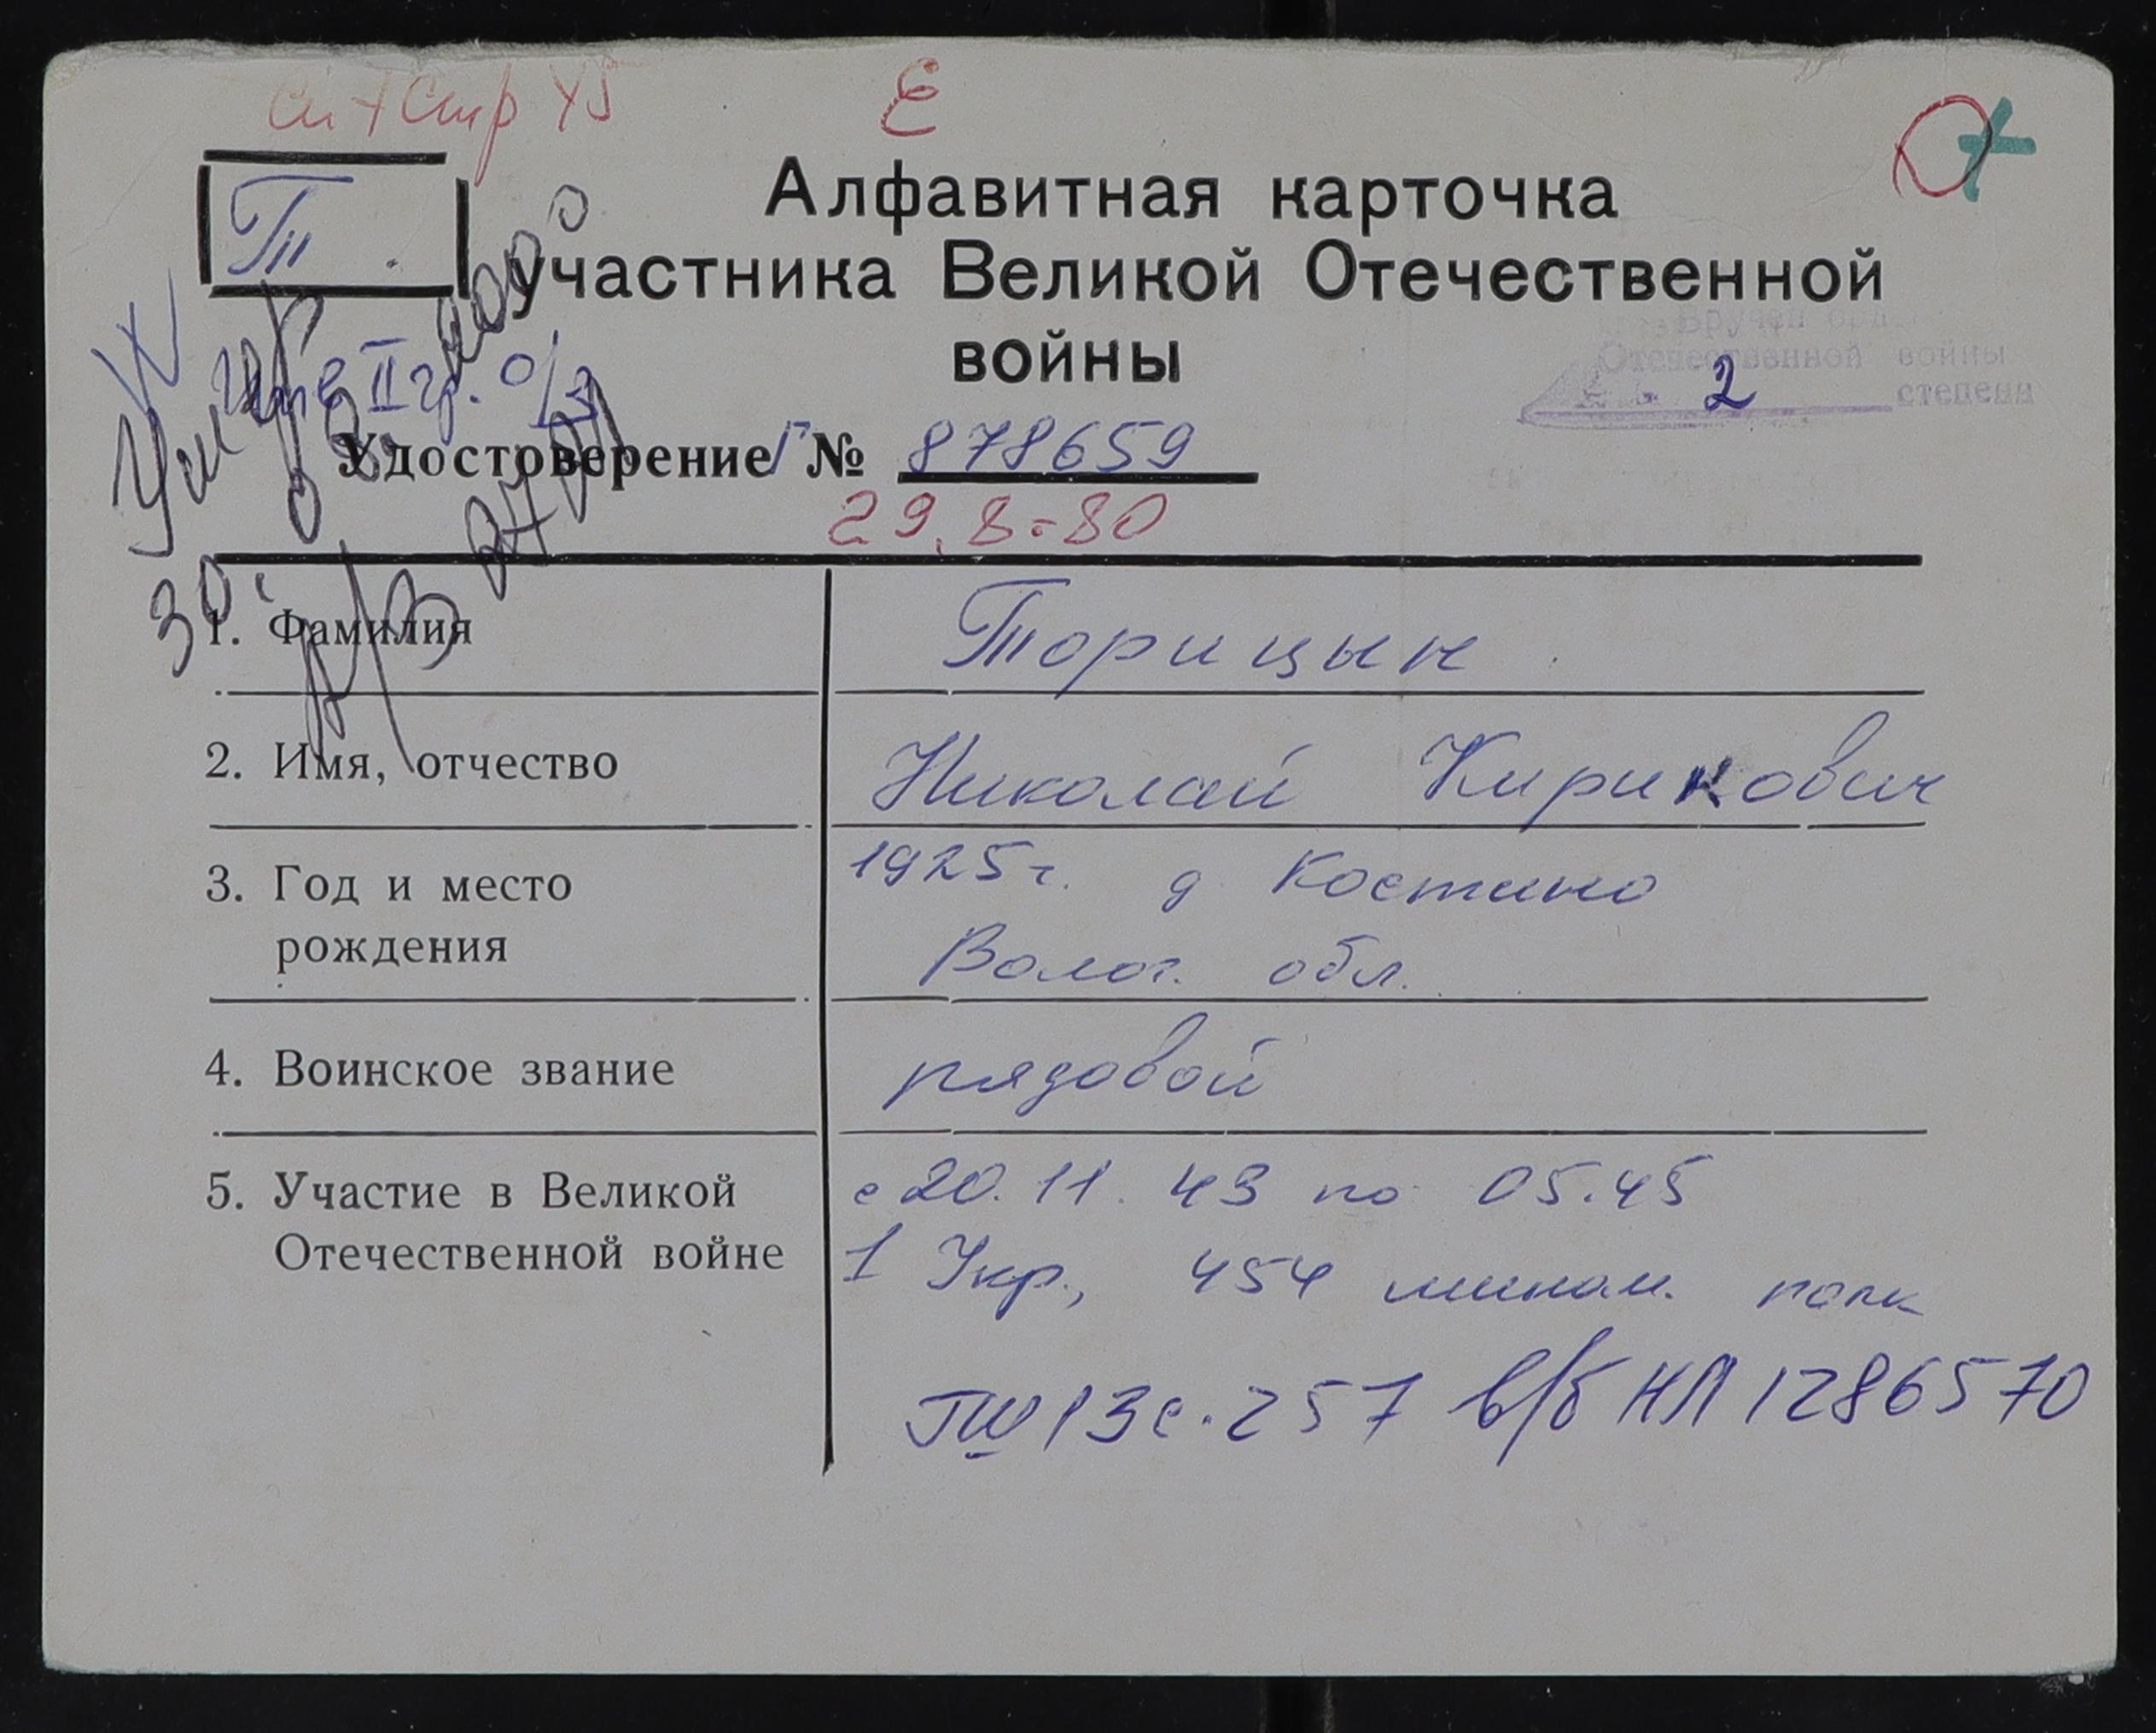 Е
Т
Алфавитная карточка
участника Великой Отечественной
войны
Отечественной войны
2 степени
Инв II гр. о/з
Умер
Удостоверение Г № 878659
29.8.80
1. Фамилия Торицын
2. Имя, отчество Николай Кирикович
3. Год и место рождения 1925г. д Костино
Волог. обл.
4. Воинское звание рядовой
5. Участие в Великой Отечественной войне с 20.11.43 по 05.45
1 Укр., 454 мином. полк
ГШ 13 с. 257 в/б НЛ 1286570